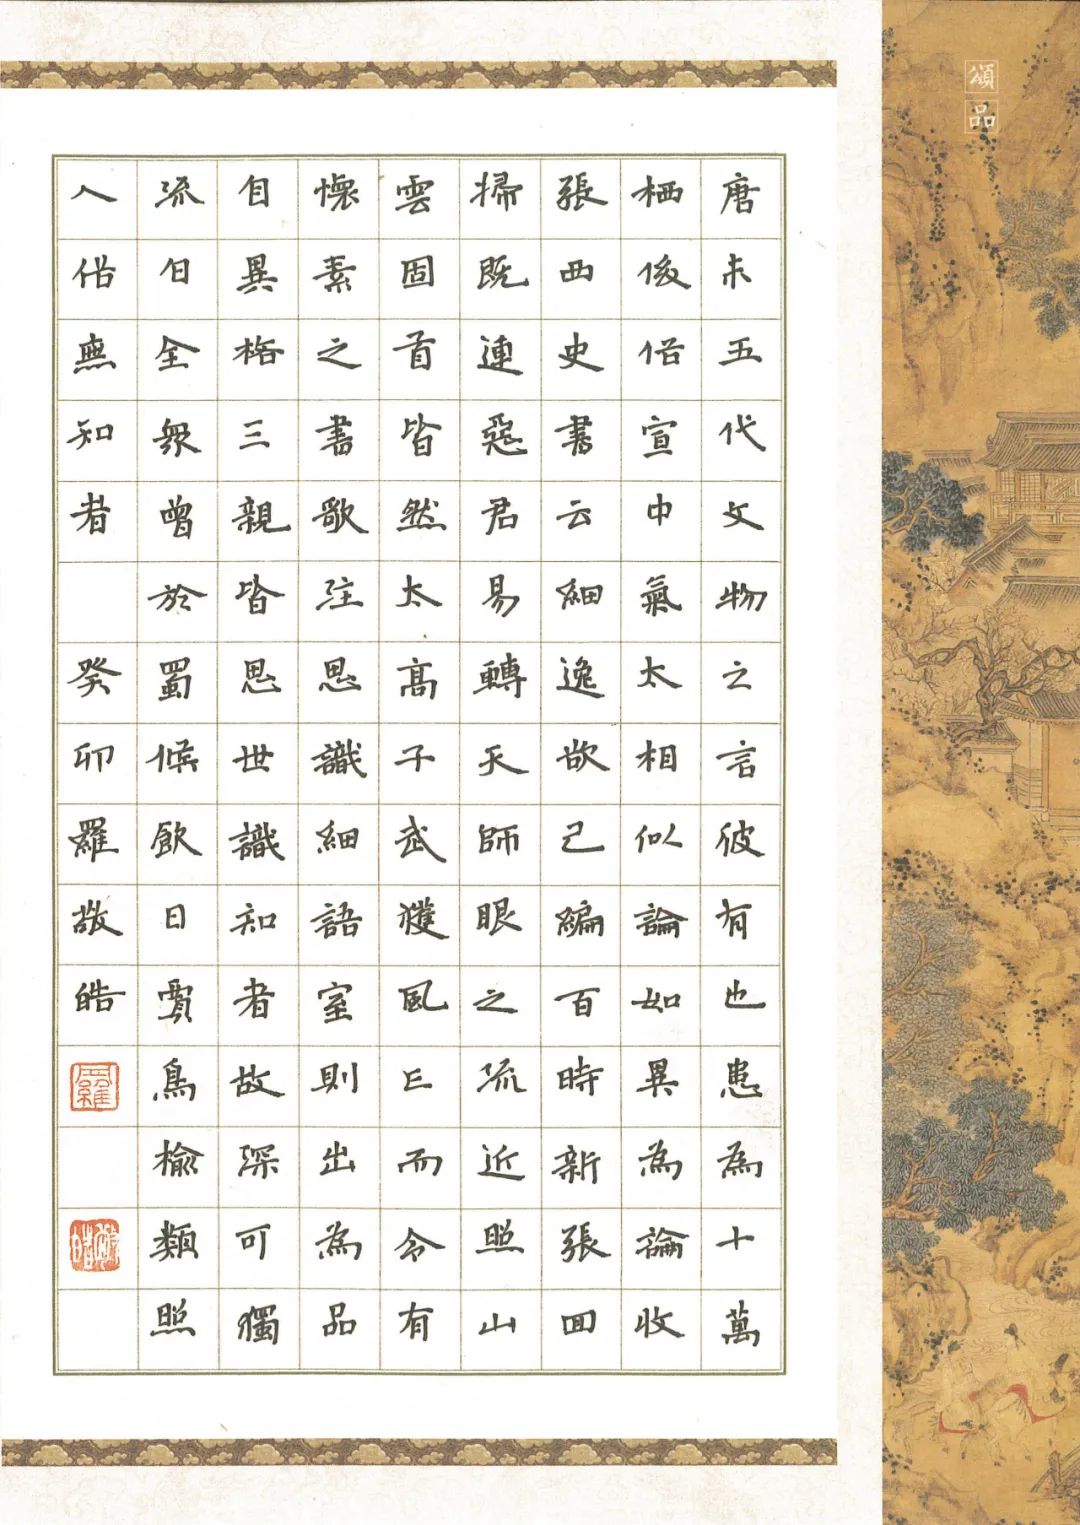 頌品
唐末五代文物之言彼有也患為十萬
栖俊俗宣中氣太相似論如異為論收
張西史書云細逸欲己編百時新張回
掃既連惡君易轉天師眼之流近照山
雲固首皆然太高子武獲風已而令有
懷素之書歌注思識細語室則出為品
自異格三親皆思世識知者故深可獨
流日全眾曾於蜀候飲日賈鳥榆類照
人俗無知者 癸卯羅敬皓
羅
敬皓